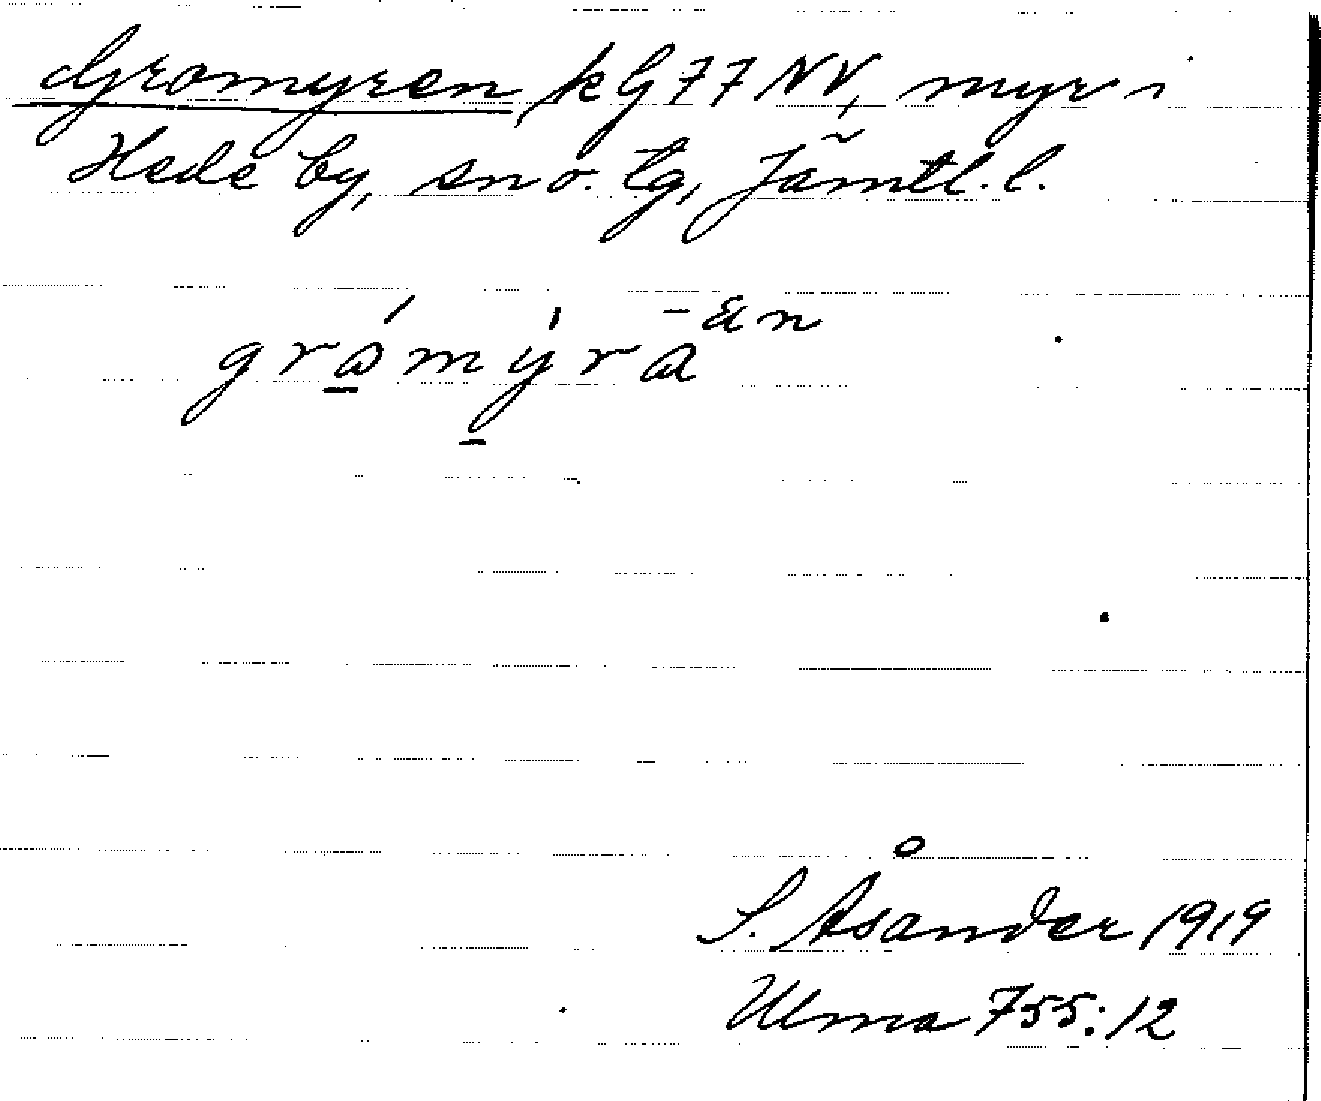 Gromyren, kG77NV, myr i
Hede by, sn o. tg, Jämtl. l.
grómy̍ra -än
S. Åsander 1919
Ulma 755:12